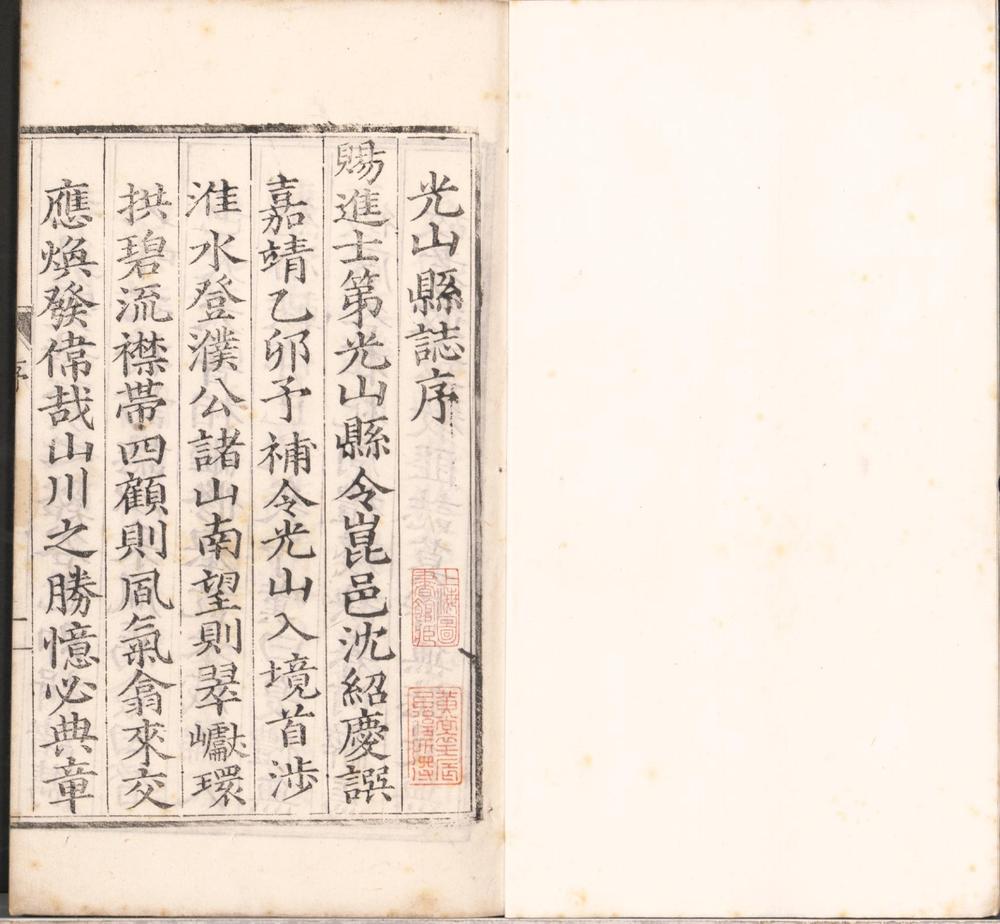 光山縣誌序
賜進士第光山縣令崑邑沈紹慶譔
嘉靖乙卯予補令光山入境首涉
淮水登濮公諸山南望則翠巘環
拱碧流襟帶四顧則風氣翕來交
應煥發偉哉山川之勝憶必典章
序
上海圖書館藏